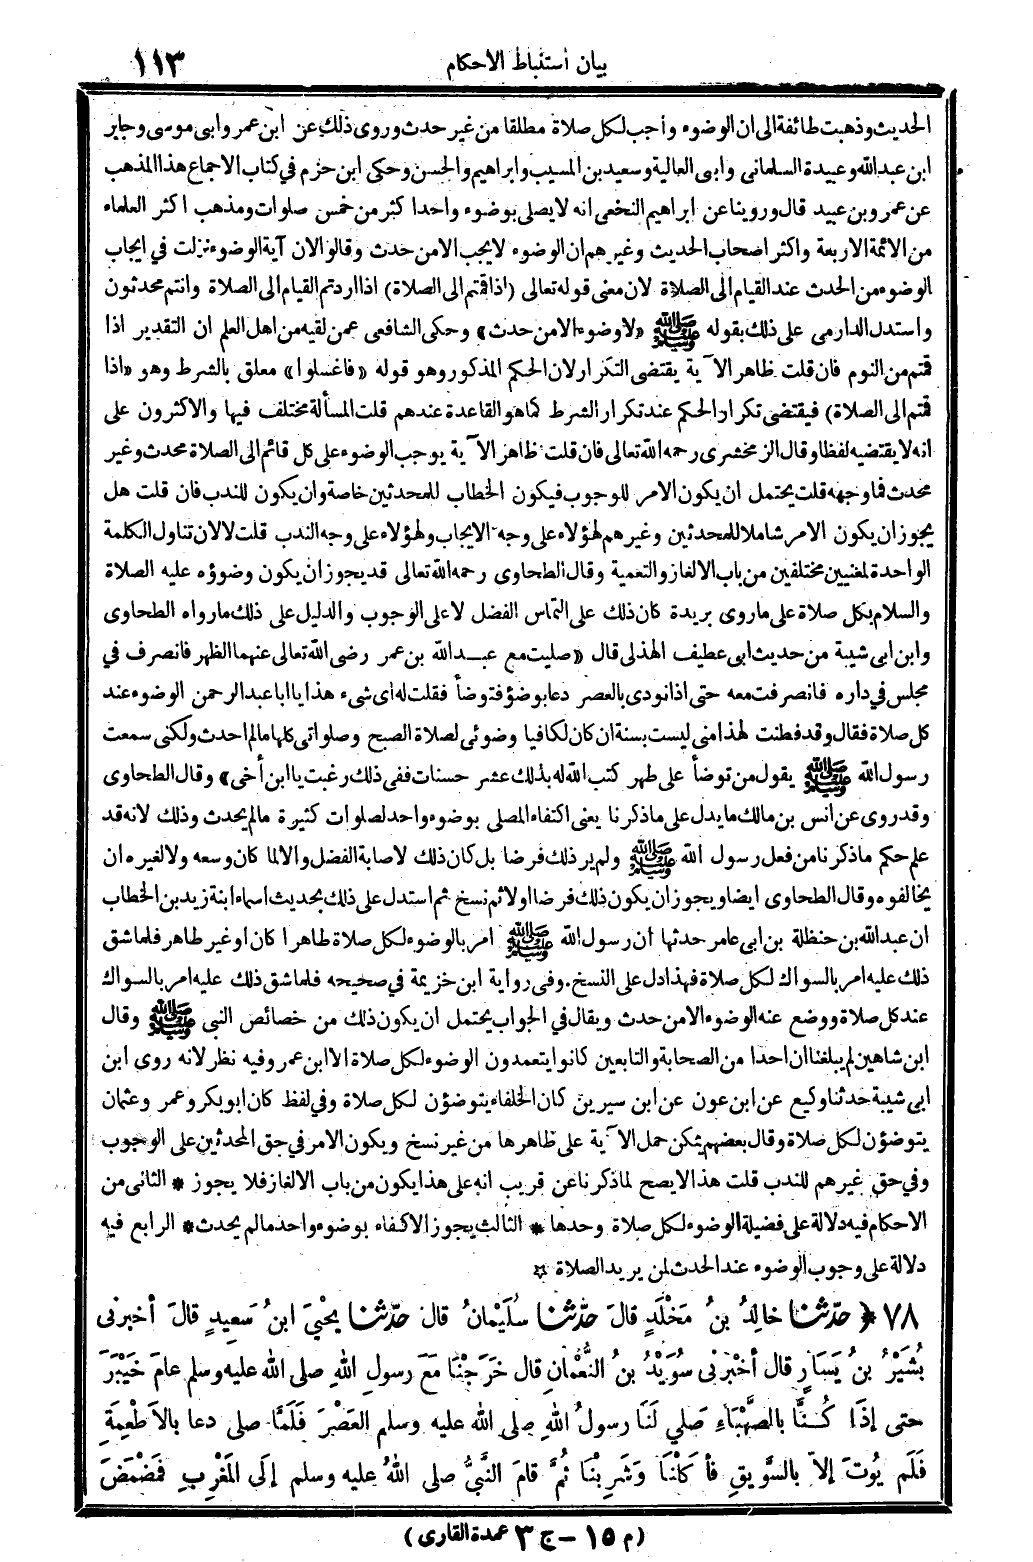 بيان استنباط الأحكام ١١٣
الحديث وذهبت طائفة الى ان الوضوء واجب لكل صلاة مطلقا من غير حدث وروى ذلك عن ابن عمر وابى موسى وجابر
ابن عبدالله وعبيدة السلمانى وابى العالية وسعيد بن المسيب وابراهيم والحسن وحكى ابن حزم في كتاب الاجماع هذا المذهب
عن عمرو بن عبيد قال وروينا عن ابراهيم النخعى انه لا يصلى بوضوء واحد اكثر من خمس صلوات ومذهب اكثر العلماء
من الائمة الاربعة واكثر اصحاب الحديث وغيرهم ان الوضوء لا يجب الا من حدث وقالوا لان آية الوضوء نزلت في ايجاب
الوضوء من الحدث عند القيام الى الصلاة لان معنى قوله تعالى (اذا قمتم الى الصلاة) اذا اردتم القيام الى الصلاة وانتم محدثون
واستدل الدارمى على ذلك بقوله ﷺ «لا وضوء الا من حدث» وحكى الشافعى عمن لقيه من اهل العلم ان التقدير اذا
قمتم من النوم فان قلت ظاهر الآية يقتضى التكرار لان الحكم المذكور وهو قوله «فاغسلوا» معلق بالشرط وهو «اذا
قمتم الى الصلاة) فيقتضى تكرار الحكم عند تكرار الشرط كما هو القاعدة عندهم قلت المسألة مختلف فيها والاكثرون على
انه لا يقتضيه لفظا وقال الزمخشرى رحمه الله تعالى فان قلت ظاهر الآية يوجب الوضوء على كل قائم الى الصلاة محدث وغير
محدث فما وجهه قلت يحتمل ان يكون الامر للوجوب فيكون الخطاب للمحدثين خاصة وان يكون للندب فان قلت هل
يجوز ان يكون الامر شاملا للمحدثين وغيرهم لهؤلاء على وجه الايجاب ولهؤلاء على وجه الندب قلت لا لان تناول الكلمة
الواحدة لمعنيين مختلفين من باب الالغاز والتعمية وقال الطحاوى رحمه الله تعالى قد يجوز ان يكون وضوؤه عليه الصلاة
والسلام بكل صلاة على ما روى بريدة كان ذلك على التماس الفضل لا على الوجوب والدليل على ذلك ما رواه الطحاوى
وابن ابى شيبة من حديث ابى عطيف الهذلى قال «صليت مع عبدالله بن عمر رضى الله تعالى عنهما الظهر فانصرف في
مجلس في داره فانصرفت معه حتى اذا نودى بالعصر دعا بوضؤ فتوضأ فقلت له اى شىء هذا يا ابا عبد الرحمن الوضوء عند
كل صلاة فقال وقد فطنت لهذا منى ليست بسنة ان كان لكافيا وضوئى لصلاة الصبح وصلواتى كلها ما لم احدث ولكنى سمعت
رسول الله ﷺ يقول من توضأ على طهر كتب الله له بذلك عشر حسنات ففى ذلك رغبت يا ابن أخى» وقال الطحاوى
وقد روى عن انس بن مالك ما يدل على ما ذكرنا يعنى اكتفاء المصلى بوضوء واحد لصلوات كثيرة ما لم يحدث وذلك لانه قد
علم حكم ما ذكرنا من فعل رسول الله ﷺ ولم ير ذلك فرضا بل كان ذلك لاصابة الفضل والا لما كان وسعه ولا لغيره ان
يخالفوه وقال الطحاوى ايضا ويجوز ان يكون ذلك فرضا اولا ثم نسخ ثم استدل على ذلك بحديث اسماء ابنة زيد بن الخطاب
ان عبدالله بن حنظلة بن ابى عامر حدثها ان رسول الله ﷺ امر بالوضوء لكل صلاة طاهرا كان او غير طاهر فلما شق
ذلك عليه امر بالسواك لكل صلاة فهذا دل على النسخ. وفى رواية ابن خزيمة في صحيحه فلما شق ذلك عليه امر بالسواك
عند كل صلاة ووضع عنه الوضوء الا من حدث ويقال في الجواب يحتمل ان يكون ذلك من خصائص النبى ﷺ وقال
ابن شاهين لم يبلغنا ان احدا من الصحابة والتابعين كانوا يتعمدون الوضوء لكل صلاة الا ابن عمر وفيه نظر لانه روى ابن
ابى شيبة حدثنا وكيع عن ابن عون عن ابن سيرين كان الخلفاء يتوضؤن لكل صلاة وفي لفظ كان ابو بكر وعمر وعثمان
يتوضؤن لكل صلاة وقال بعضهم يمكن حمل الآية على ظاهرها من غير نسخ ويكون الامر في حق المحدثين على الوجوب
وفي حق غيرهم للندب قلت هذا لا يصح لما ذكرنا عن قريب انه على هذا يكون من باب الالغاز فلا يجوز * الثانى من
الاحكام فيه دلالة على فضيلة الوضوء لكل صلاة وحدها * الثالث يجوز الاكتفاء بوضوء واحد ما لم يحدث * الرابع فيه
دلالة على وجوب الوضوء عند الحدث لمن يريد الصلاة ☆
٧٨ ﴿ حدّثنا خالِدُ بنُ مَخْلَدٍ قالَ حدّثنا سُلَيْمانُ قال حدّثنا يحْيَى ابنُ سَعِيدٍ قالَ أخبرنى
بُشَيْرُ بنُ يَسَارٍ قال أخْبرنى سُوَيْدُ بنُ النُّعْمانِ قال خَرَجْنا مَعَ رسولِ اللهِ صلى الله عليه وسلم عامَ خَيْبَرَ
حتى إذَا كُنَّا بالصَّهْبَاءِ صَلي لَنَا رسولُ اللهِ صلى الله عليه وسلم العَصْرَ فَلَمَّا صلى دعا بالأَطْعِمَةِ
فَلَم يُوتَ إلاّ بالسَّوِيقِ فأكَلْنَا وَشَرِبْنَا ثُمَّ قامَ النَّبيُّ صلى اللهُ عليه وسلم إلَى المَغْرِبِ فَمَضْمَضَ
(م ١٥ – ج ٣ عمدة القارى)